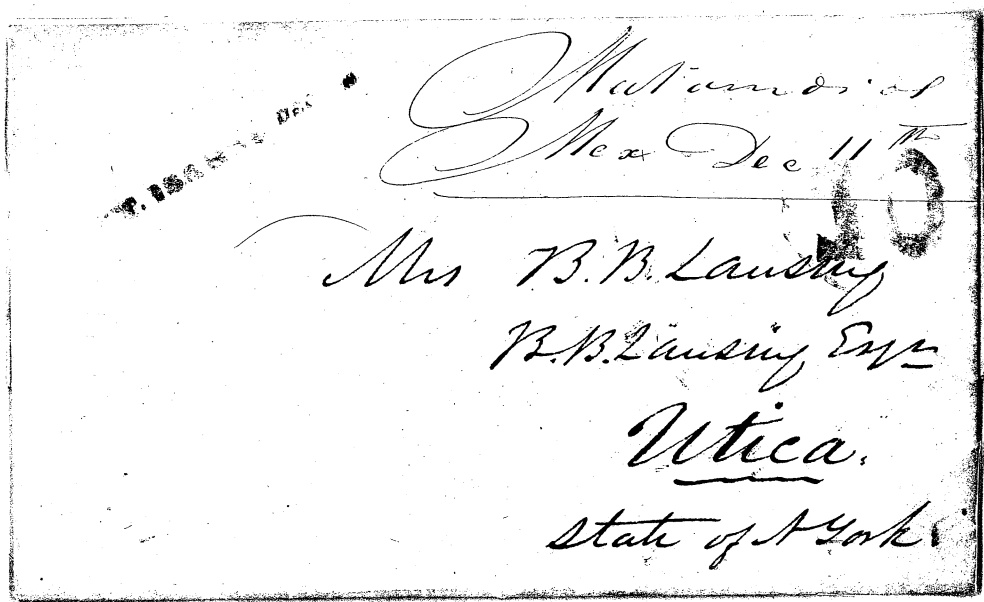 Matamoras
Mex Dec 11th
10
T. ISABEL Dec
Mrs B. B. Lansing
B. B. Lansing Esqr
Utica.
State of N York